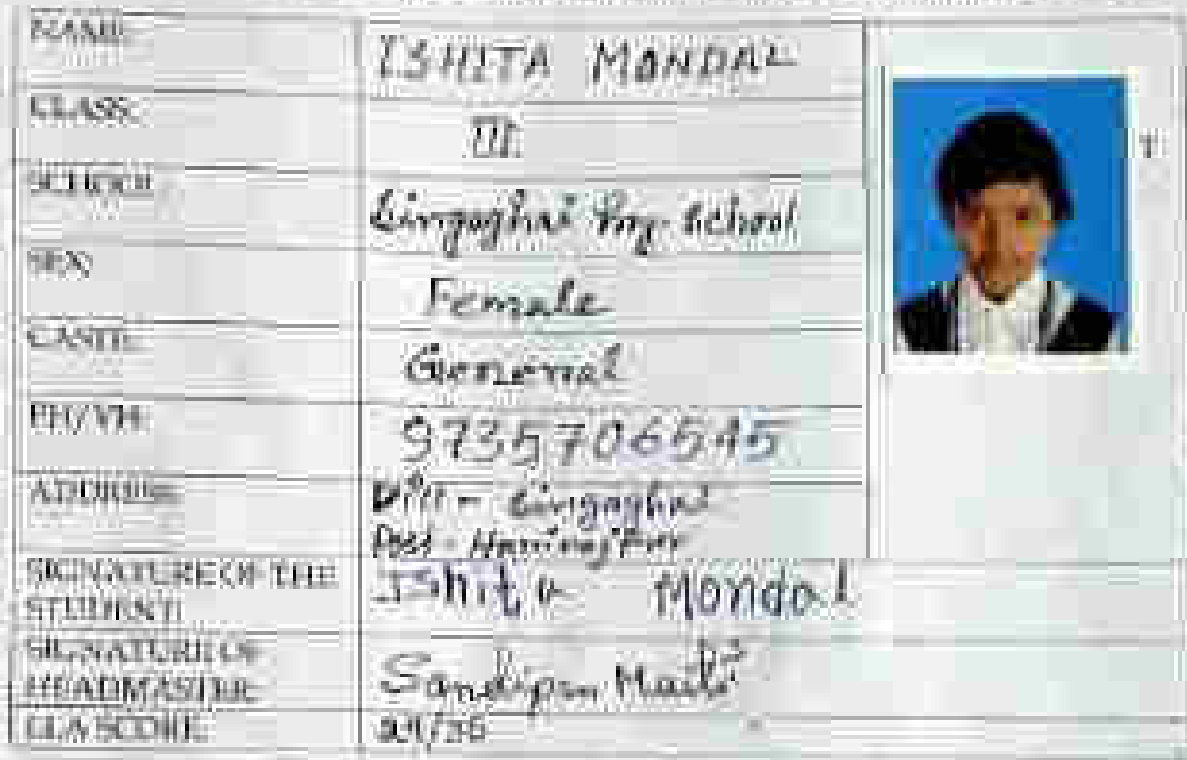 NAME:
ISHITA MONDAL
CLASS:
III
SCHOOL
Lingoghai Pry. School
SEX:
Female
CASTE:
General
PH/VH:
9735706545
ADDRESS:
Vill - Lingoghai
Post -
SIGNATURE OF THE
STUDENT:
IShita Mondal
SIGNATURE OF
HEADMASTER
Sandipan Maiti